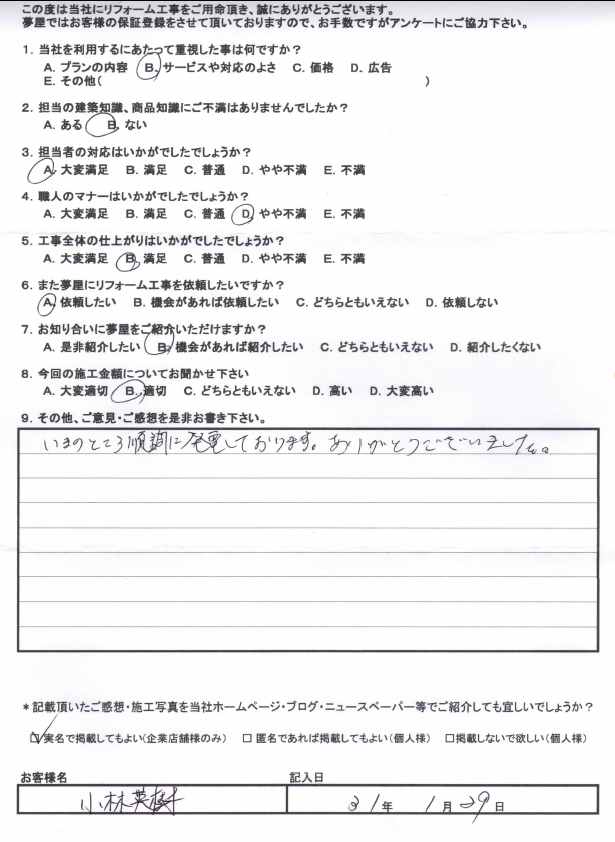 この度は当社にリフォーム工事をご用命頂き、誠にありがとうございます。
夢屋ではお客様の保証登録をさせて頂いておりますので、お手数ですがアンケートにご協力下さい。
1. 当社を利用するにあたって重視した事は何ですか？
A. プランの内容 B. サービスや対応のよさ C. 価格 D. 広告
E. その他( )
2. 担当の建築知識、商品知識にご不満はありませんでしたか？
A. ある B. ない
3. 担当者の対応はいかがでしたでしょうか？
A. 大変満足 B. 満足 C. 普通 D. やや不満 E. 不満
4. 職人のマナーはいかがでしたでしょうか？
A. 大変満足 B. 満足 C. 普通 D. やや不満 E. 不満
5. 工事全体の仕上がりはいかがでしたでしょうか？
A. 大変満足 B. 満足 C. 普通 D. やや不満 E. 不満
6. また夢屋にリフォーム工事を依頼したいですか？
A. 依頼したい B. 機会があれば依頼したい C. どちらともいえない D. 依頼しない
7. お知り合いに夢屋をご紹介いただけますか？
A. 是非紹介したい B. 機会があれば紹介したい C. どちらともいえない D. 紹介したくない
8. 今回の施工金額についてお聞かせ下さい
A. 大変適切 B. 適切 C. どちらともいえない D. 高い D. 大変高い
9. その他、ご意見・ご感想を是非お書き下さい。
いまのところ順調に発電しております。ありがとうございました。
*記載頂いたご感想・施工写真を当社ホームページ・ブログ・ニュースペーパー等でご紹介しても宜しいでしょうか？
☑実名で掲載してもよい(企業店舗様のみ) □匿名であれば掲載してもよい(個人様) □掲載しないで欲しい(個人様)
お客様名 記入日
小林英樹 31年 1月29日